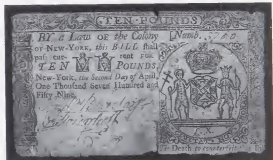 TEN POUNDS
BY a Law of the Colony
of New-York, this BILL shall
pass current for
TEN POUNDS.
New-York, the Second Day of April,
One Thousand Seven Hundred and
Fifty Nine.
Numb.
'Tis Death to counterfeit